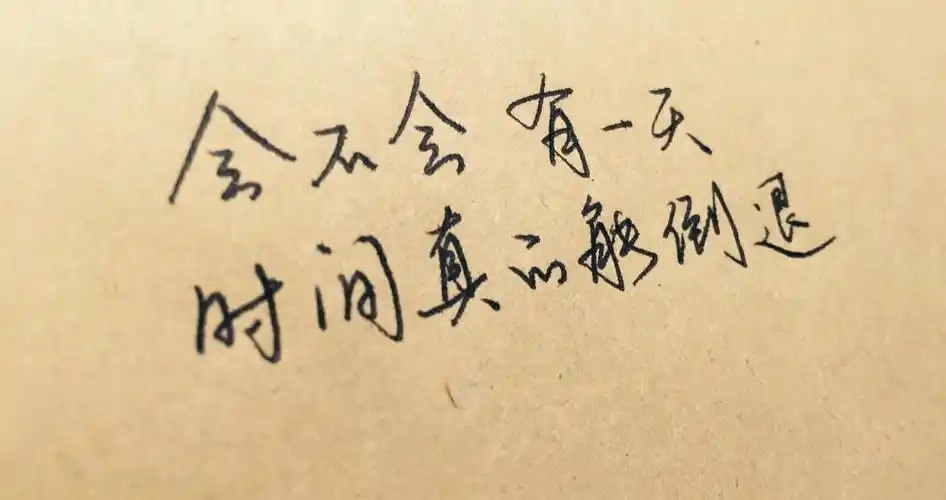 会不会有一天
时间真的能倒退